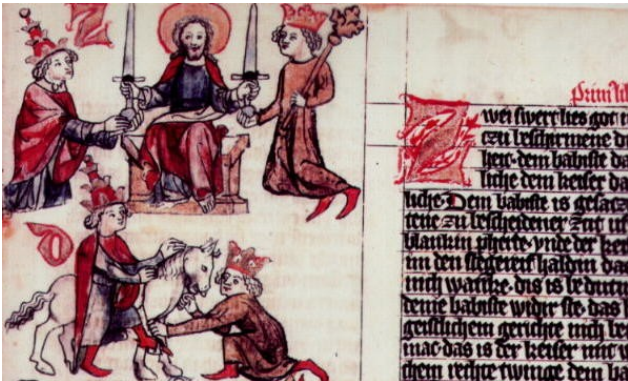 Primi
Zwei swert lies got
czu beschirmene
heit· dem babiste da
liche dem keiser da
liche· Dem babiste is gesacz
tene zu bescheidener zit
blankin pherde· vnde der kei
im den stegereif haldin· daz
mich dis is be dutu
deme babiste widir ste· das
geistlichem gerichte nich be
mac· das is der keiser mit w
chem rechte twinge dem ba